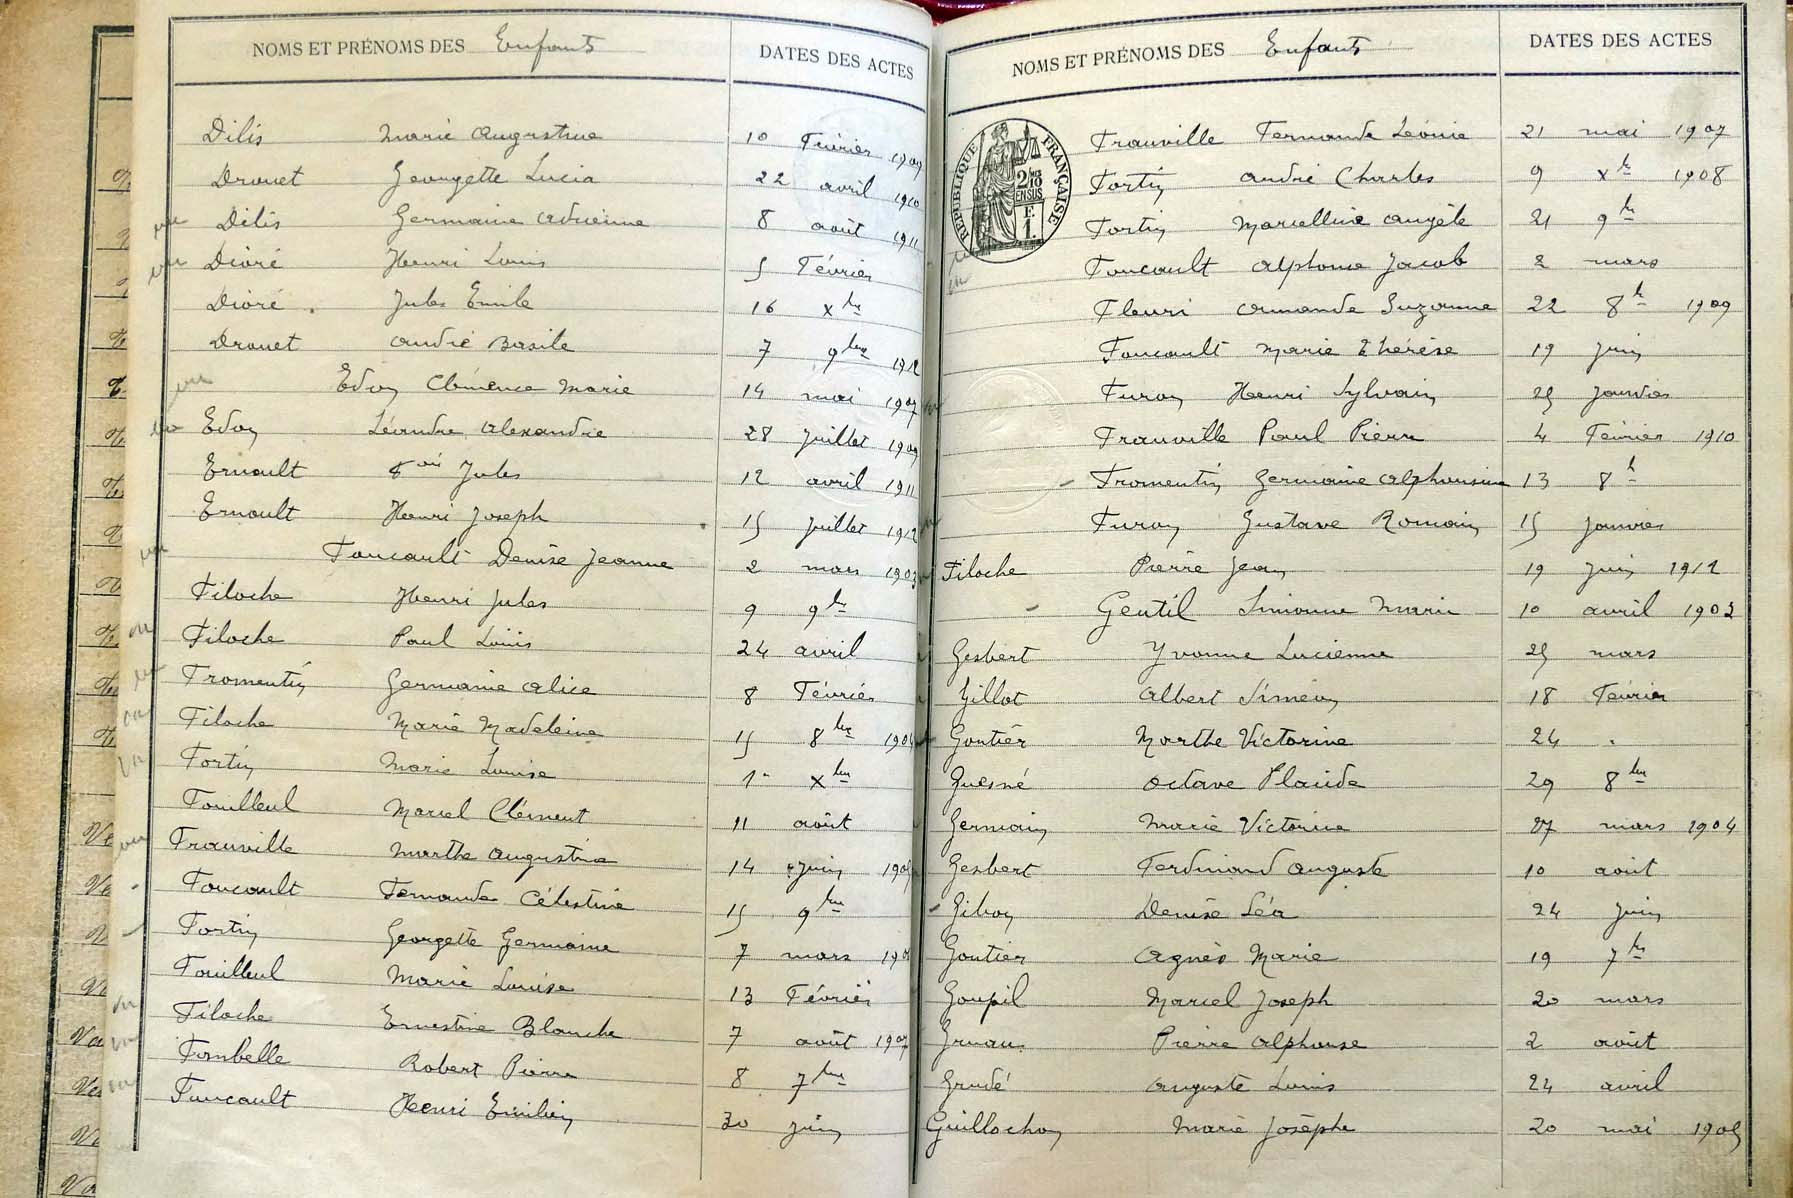 NOMS ET PRÉNOMS DES Enfants DATES DES ACTES
Dilis Marie Augustine 10 Février 1909
Drouet Georgette Lucia 22 avril 1910
vu Dilis Germaine Adrienne 8 août 1911
vu Dioré Henri Louis 5 Février
Dioré Jules Emile 16 xbre
Drouet André Basile 7 9bre 1912
vu Edon Clémence Marie 14 mai 1907
vu Edon Léandre Alexandre 28 juillet 1909
Ernault Jules 12 avril 1911
Ernault Henri Joseph 15 juillet 1912
vu Foucault Denise Jeanne 2 mars 1903
Filoche Henri Jules 9 9bre
vu Filoche Paul Louis 24 avril
vu Fromentin Germaine Alice 8 Février
vu Filoche Marie Madeleine 15 8bre 1904
vu Fortin Marie Louise 1er xbre
Fouilleul Marcel Clément 11 août
vu Frauville Marthe Augustine 14 juin
Foucault Fernande Célestine 15 9bre
Fortin Georgette Germaine 7 mars
Fouilleul Marie Louise 13 Février
vu Filoche Ernestine Blanche 7 août 1907
vu Fombelle Robert Pierre 8 7bre
vu Foucault Henri Emilien 30 juin
NOMS ET PRÉNOMS DES Enfants DATES DES ACTES
RÉPUBLIQUE FRANÇAISE
2/10 EN SUS
F. 1.
Frauville Fernande Léonie 21 mai 1907
Fortin André Charles 9 xbre 1908
Fortin Marcelline Angèle 21 9bre
vu Foucault Alphonse Jacob 2 mars
Fleuri Armande Suzanne 22 8bre 1909
Foucault Marie Thérèse 19 juin
Furon Henri Sylvain 25 janvier
Frauville Paul Pierre 4 Février 1910
Fromentin Germaine Alphonsine 13 8bre
Furon Gustave Romain 15 janvier
Filoche Pierre Jean 19 juin 1912
Gentil Simonne Marie 10 avril 1903
Gesbert Yvonne Lucienne 25 mars
Gillot Albert Siméon 18 Février
Goutier Marthe Victorine 24 .
Guesné Octave Placide 29 8bre
Germain Marie Victorine 27 mars 1904
Gesbert Ferdinand Auguste 10 août
Denise Léa 24 juin
Goutier Agnès Marie 19 7bre
Goupil Marcel Joseph 20 mars
Gruau Pierre Alphonse 2 août
Grudé Auguste Louis 24 avril
Guillochon Marie Josèphe 20 mai 1905